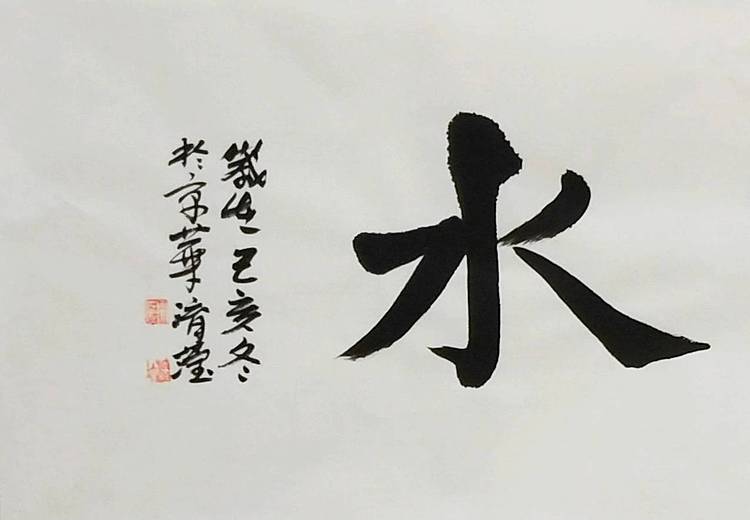 水
歲在己亥冬
於京華清瑩